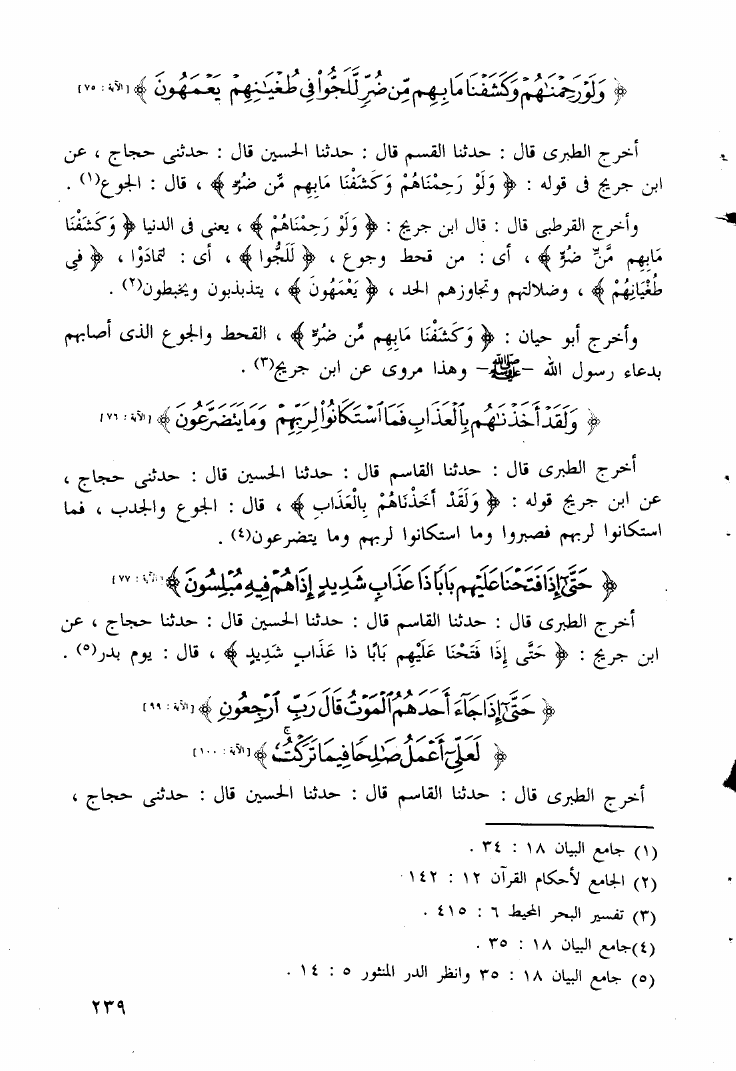 ﴿ وَلَوْ رَحِمْنَٰهُمْ وَكَشَفْنَا مَا بِهِم مِّن ضُرٍّ لَّلَجُّوا۟ فِى طُغْيَٰنِهِمْ يَعْمَهُونَ ﴾ [الآية : ٧٥]
أخرج الطبرى قال : حدثنا القسم قال : حدثنا الحسين قال : حدثنى حجاج ، عن
ابن جريج فى قوله : ﴿ وَلَوْ رَحِمْنَاهُمْ وَكَشَفْنَا مَابِهِم مِّن ضُرٍّ ﴾ ، قال : الجوع(١) .
وأخرج القرطبى قال : قال ابن جريج : ﴿ وَلَوْ رَحِمْنَاهُمْ ﴾ ، يعنى فى الدنيا ﴿ وَكَشَفْنَا
مَابِهِم مَّنِّ ضُرٍّ ﴾ ، أى : من قحط وجوع ، ﴿ لَلَجُّوا ﴾ ، أى : لتمادَوْا ، ﴿ فِي
طُغْيَانِهُمْ ﴾ ، وضلالتهم وتجاوزهم الحد ، ﴿ يَعْمَهُونَ ﴾ ، يتذبذبون ويخبطون(٢) .
وأخرج أبو حيان : ﴿ وَكَشَفْنَا مَابِهِم مِّن ضُرٍّ ﴾ ، القحط والجوع الذى أصابهم
بدعاء رسول الله -ﷺ- وهذا مروى عن ابن جريج(٣) .
﴿ وَلَقَدْ أَخَذْنَٰهُم بِالْعَذَابِ فَمَا ٱسْتَكَانُوا۟ لِرَبِّهِمْ وَمَا يَتَضَرَّعُونَ ﴾ [الآية : ٧٦]
أخرج الطبرى قال : حدثنا القاسم قال : حدثنا الحسين قال : حدثنى حجاج ،
عن ابن جريج قوله : ﴿ وَلَقَدْ أَخَذْنَاهُمْ بِالْعَذَابِ ﴾ ، قال : الجوع والجدب ، فما
استكانوا لربهم فصبروا وما استكانوا لربهم وما يتضرعون(٤) .
﴿ حَتَّىٰٓ إِذَا فَتَحْنَا عَلَيْهِم بَابًا ذَا عَذَابٍ شَدِيدٍ إِذَا هُمْ فِيهِ مُبْلِسُونَ ﴾ [الآية : ٧٧]
أخرج الطبرى قال : حدثنا القاسم قال : حدثنا الحسين قال : حدثنا حجاج ، عن
ابن جريج : ﴿ حَتَّى إِذَا فَتَحْنَا عَلَيْهِم بَابًا ذا عَذَابٍ شَدِيدٍ ﴾ ، قال : يوم بدر(٥) .
﴿ حَتَّىٰٓ إِذَا جَآءَ أَحَدَهُمُ ٱلْمَوْتُ قَالَ رَبِّ ٱرْجِعُونِ ﴾ [الآية : ٩٩]
﴿ لَعَلِّىٓ أَعْمَلُ صَٰلِحًا فِيمَا تَرَكْتُ ۚ ﴾ [الآية : ١٠٠]
أخرج الطبرى قال : حدثنا القاسم قال : حدثنا الحسين قال : حدثنى حجاج ،
(١) جامع البيان ١٨ : ٣٤ .
(٢) الجامع لأحكام القرآن ١٢ : ١٤٢ .
(٣) تفسير البحر المحيط ٦ : ٤١٥ .
(٤)جامع البيان ١٨ : ٣٥ .
(٥) جامع البيان ١٨ : ٣٥ وانظر الدر المنثور ٥ : ١٤ .
٢٣٩